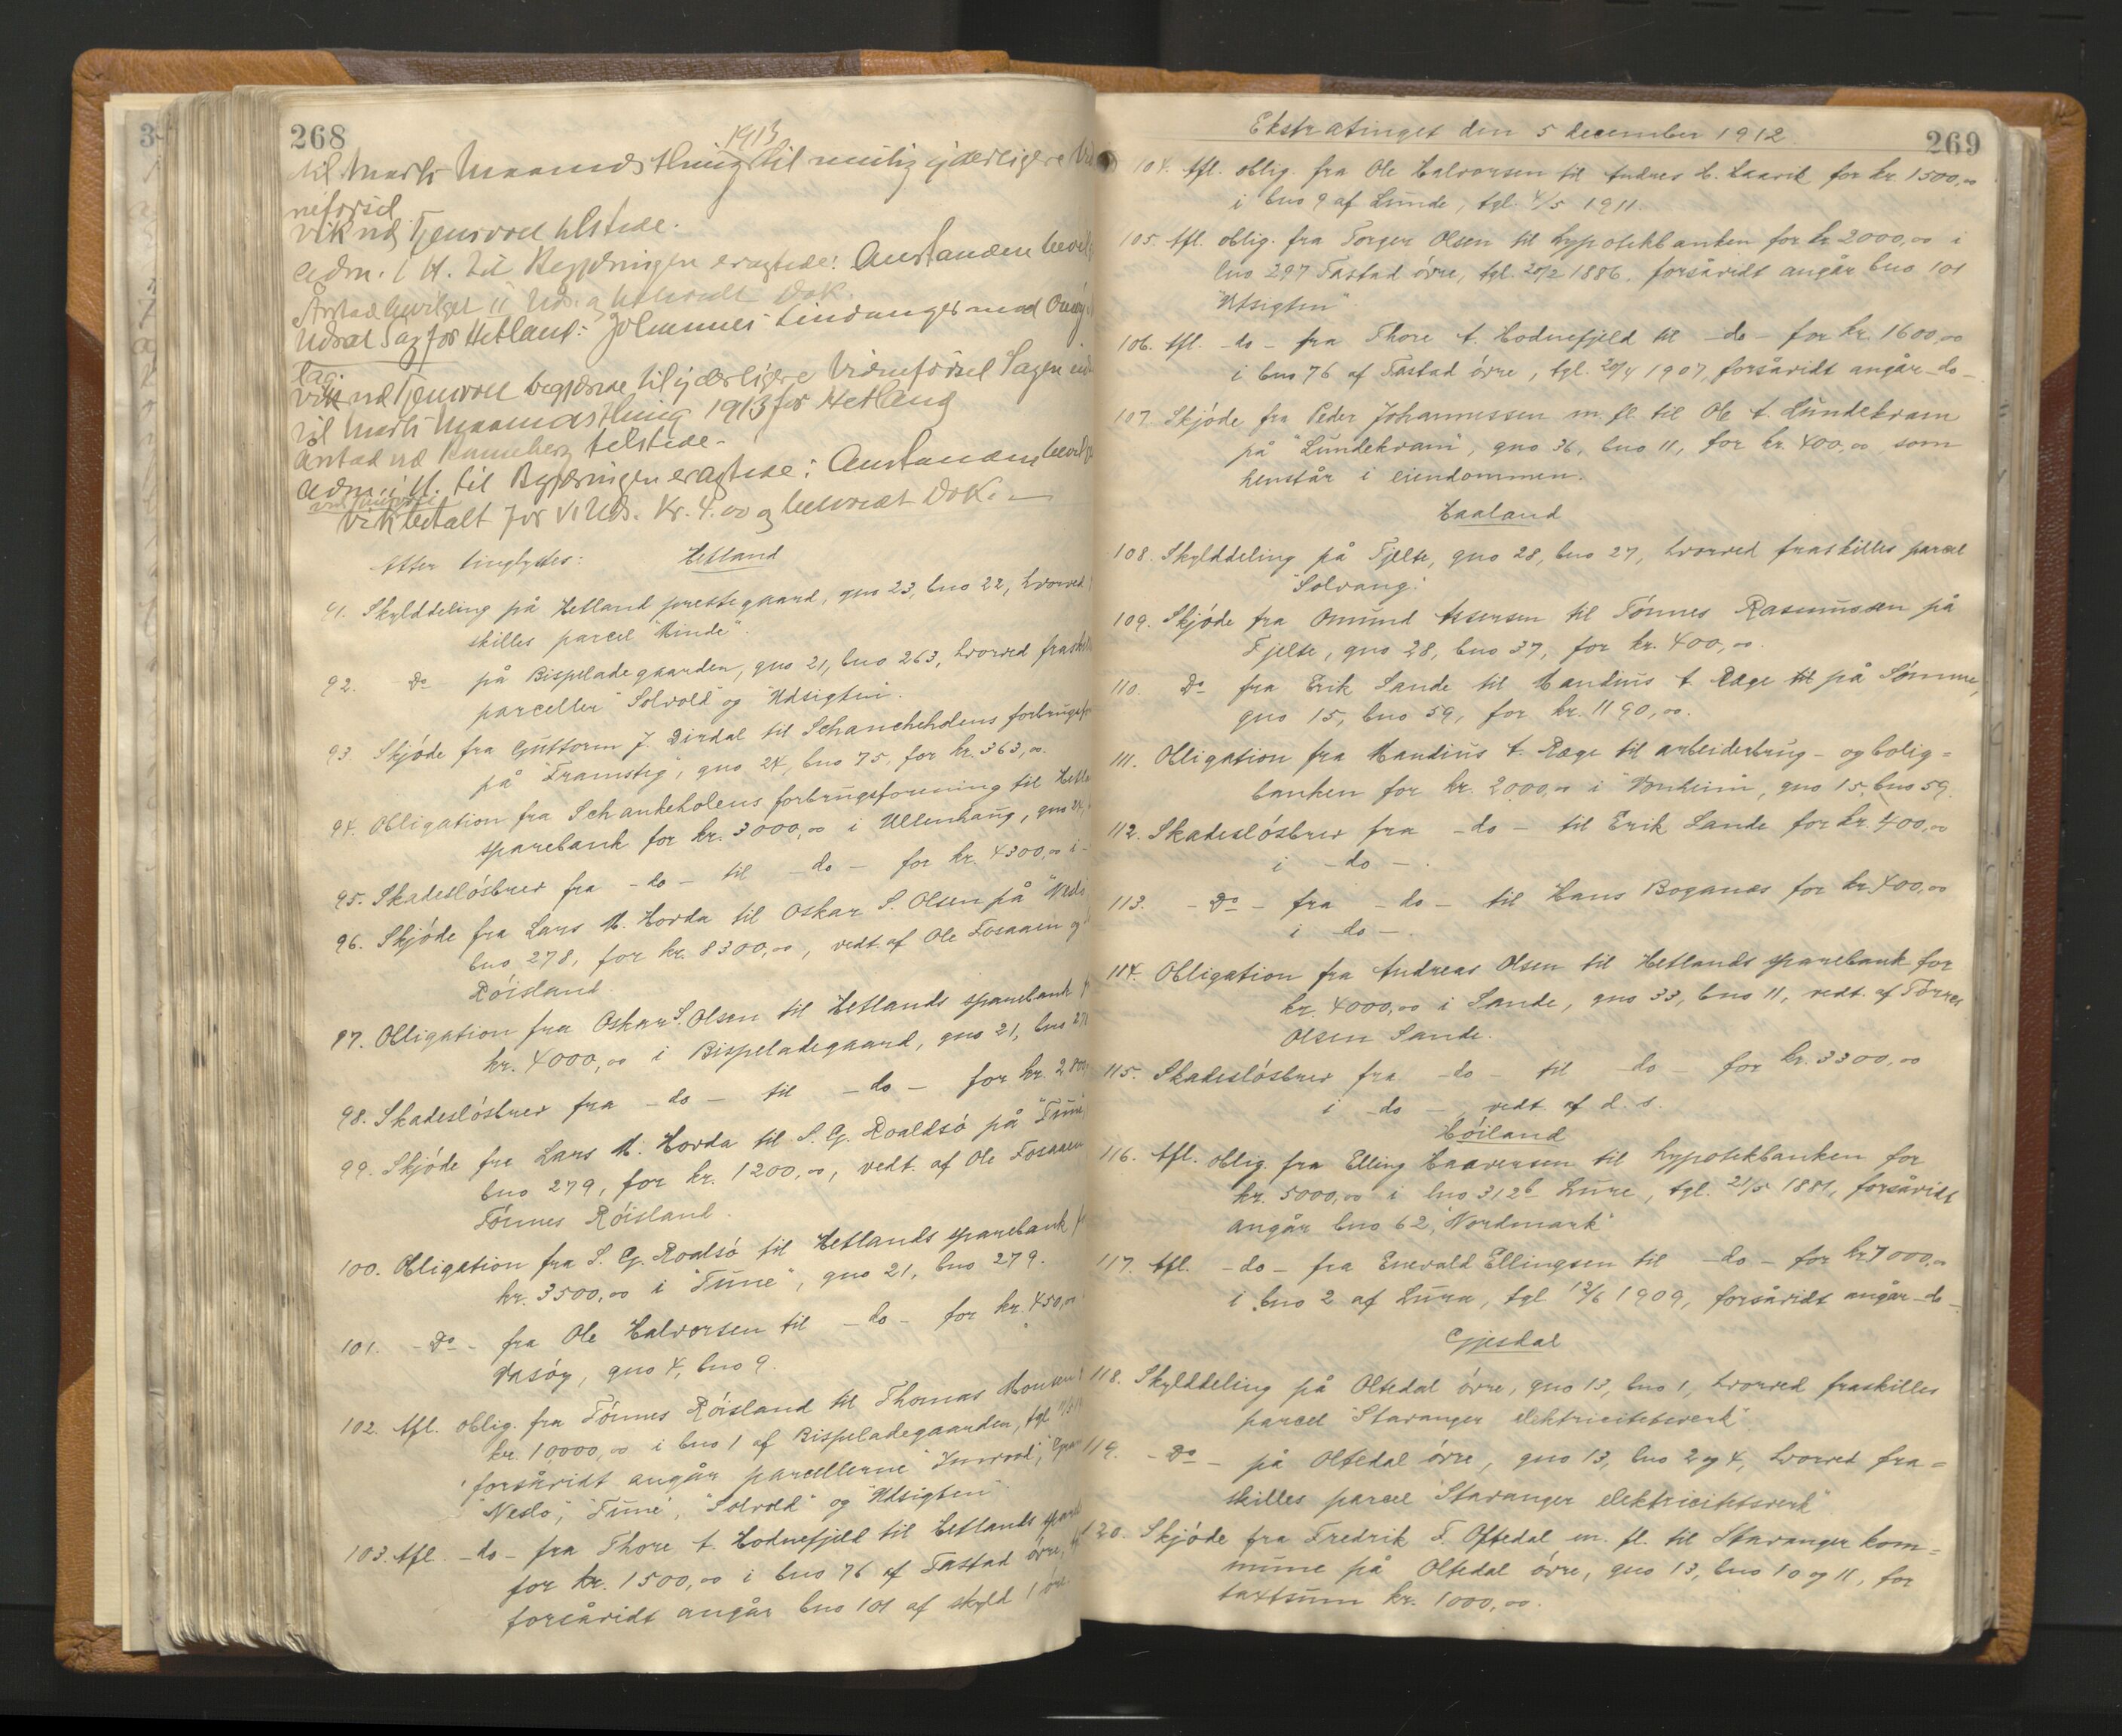 268
1913
til Marts Maaneds Thing til mulig yderligere
neførsel
Vik ved Tjensvoll tilstede.
Adm. i H. til Begjæringen eragtede: Anstanden
Anstad bevilget
Udsat Sag for Hetland: Johannes Lindanger mod
Vik ved Tjensvoll begjærede til yderligere Vidneførsel Sagen
til Marts Maanedsthing 1913 for Hetland
Anstad ved tilstede.
Adm. i H. til Begjæringen eragtede: Anstanden
Vik betalt for Uds. Kr. 4.00 og beskrevet Dok.
Atter tinglystes: Hetland
91. Skylddeling på Hetland prestegaard, gno 23, bno 22, hvorved
skilles parcel "Minde".
92. Do på Bispeladegaarden, gno 21, bno 263, hvorved
parceller "Solvold" og "Udsigten".
93. Skjöde fra Guttorm J. Dirdal til Schancheholens
på "Framstig", gno 24, bno 75, for kr. 363,00.
94. Obligation fra Schankeholens forbrugsforening til
sparebank for kr. 3000,00 i Ullenhaug, gno 24,
95. Skadeslösbrev fra -do- til -do- for kr. 4300,00 i
96. Skjöde fra Lars M. Horda til Oskar S. Olsen på
bno 278, for kr. 8300,00, vedt. af Ole Fosaaen og
Röisland.
97. Obligation fra Oskar S. Olsen til Hetlands sparebank
kr. 4000,00 i Bispeladegaard, gno 21, bno
98. Skadeslösbrev fra -do- til -do- for kr.
99. Skjöde fra Lars M. Horda til S. G. Roaldsö på "Tune"
bno 279, for kr. 1200,00, vedt. af Ole Fosaaen
Tönnes Röisland.
100. Obligation fra S. G. Roalsö til Hetlands sparebank
kr. 3500,00 i "Tune", gno 21, bno 279.
101. -Do- fra Ole Halvorsen til -do- for kr. 450,00
Vasöy, gno 4, bno 9.
102. Afl. oblig. fra Tönnes Röisland til Thomas
kr. 10000,00 i bno 1 af Bispeladegaarden, tgl.
forsåvidt angår parcellerne
"Neslo", "Tune", "Solvold" og "Udsigten".
103. Afl. -do- fra Thore A. Hodnefjeld til Hetlands
for kr. 1500,00 i bno 76 af Tastad övre,
forsåvidt angår bno 101 af skyld 1 öre.
Ekstratinget den 5 december 1912.
269
104. Afl. oblig. fra Ole Halvorsen til Andres H. Haavik for kr. 1500,00
i bno 9 af Lunde, tgl. 4/5 1911.
105. Afl. oblig. fra Torger Olsen til hypotekbanken for kr. 2000,00 i
lno 297 Tastad övre, tgl. 20/2 1886, forsåvidt angår bno 101
"Utsigten".
106. Afl. -do- fra Thore A. Hodnefjeld til -do- for kr. 1600,00
i bno 76 af Tastad övre, tgl. 20/4 1907, forsåvidt angår -do-.
107. Skjöde fra Peder Johannessen m. fl. til Ole A. Lundekvam
på "Lundekvam", gno 36, bno 11, for kr. 400,00 som
henstår i eiendommen.
Haaland
108. Skylddeling på Fjelte, gno 28, bno 27, hvorved fraskilles parcel
"Solvang".
109. Skjöde fra Omund Assersen til Tönnes Rasmussen på
Fjelte, gno 28, bno 37, for kr. 400,00.
110. Do fra Erik Sande til Mandius A. Ræge til på Sömme,
gno 15, bno 59, for kr. 1190,00.
111. Obligation fra Mandius A. Ræge til arbeiderbrug- og bolig=
banken for kr. 2000,00 i "Vonheim", gno 15, bno 59.
112. Skadeslösbrev fra -do- til Erik Sande for kr. 400,00
i -do-.
113. -Do- fra -do- til Hans Boganæs for kr. 400,00
i -do-.
114. Obligation fra Andreas Olsen til Hetlands sparebank for
kr. 4000,00 i Sande, gno 33, bno 11, vedt. af Torres
Olsen Sande.
115. Skadeslösbrev fra -do- til -do- for kr. 3300,00
i -do-, vedt. af d. s.
Höiland
116. Afl. oblig. fra Elling Haaversen til hypotekbanken for
kr. 5000,00 i lno 312b Lure, tgl. 21/5 1881, forsåvidt
angår bno 62, "Nordmark"
117. Afl. -do- fra Enevald Ellingsen til -do- for kr. 7000,00
i bno 2 af Lura, tgl. 12/6 1909, forsåvidt angår -do-.
Gjesdal
118. Skylddeling på Oltedal övre, gno 13, bno 1, hvorved fraskilles
parcel "Stavanger elektricitetsverk".
119. -Do- på Oltedal övre, gno 13, bno 2 og 4, hvorved fra=
skilles parcel "Stavanger elektricitetsverk".
120. Skjöde fra Fredrik F. Oftedal m. fl. til Stavanger kom=
mune på Oltedal övre, gno 13, bno 10 og 11, for
taxtsum kr. 1000,00.